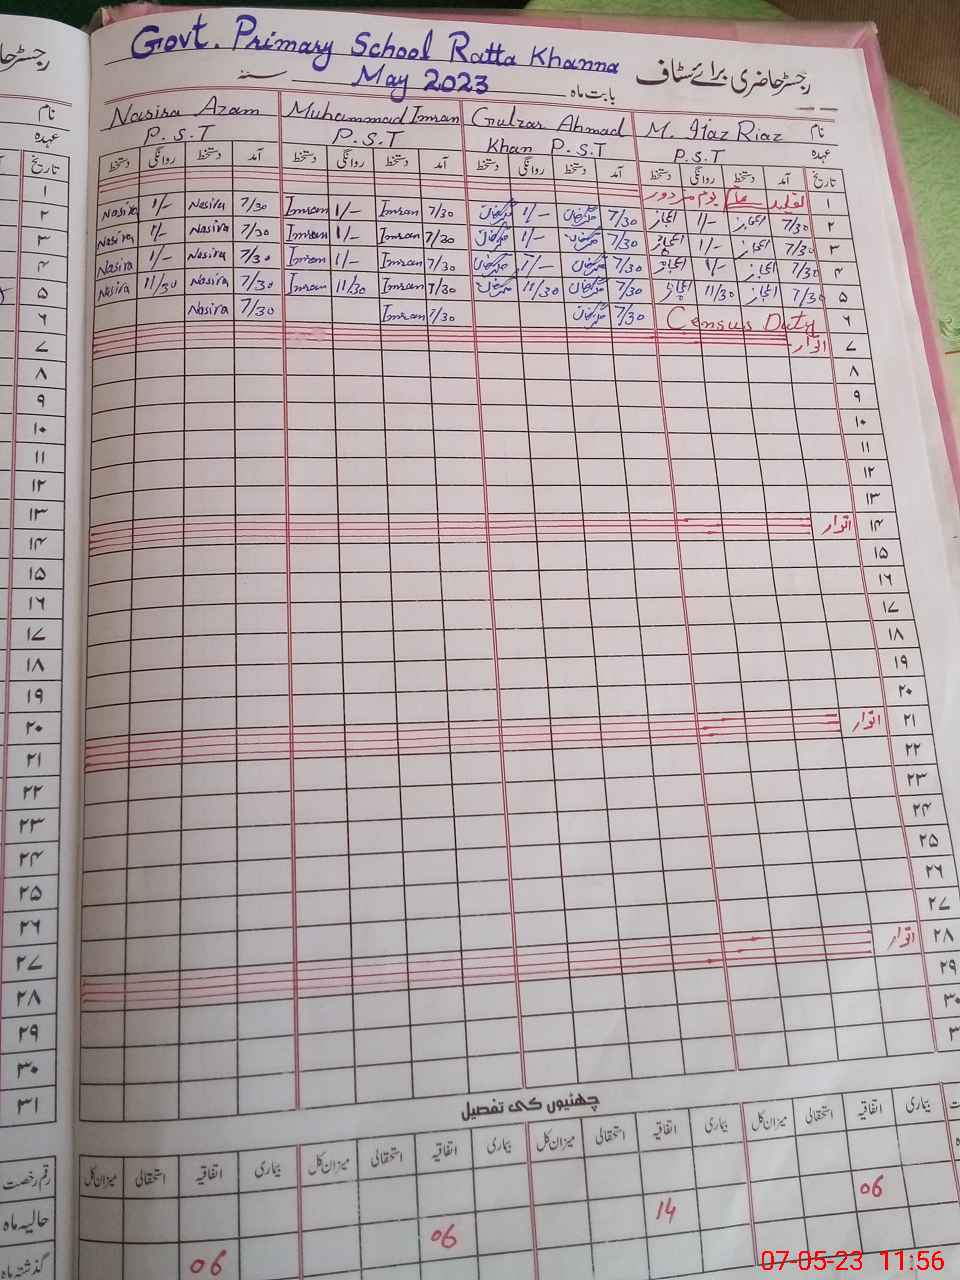 Govt. Primary School Ratta Khanna
رجسٹر حاضری برائے سٹاف
بابت ماہ May 2023 سنہ
نام M. Ijaz Riaz Gulzar Ahmad Muhammad Imran Nasira Azam
عہدہ P.S.T Khan P.S.T P.S.T P.S.T
تاریخ آمد دستخط روانگی دستخط آمد دستخط روانگی دستخط آمد دستخط روانگی دستخط آمد دستخط روانگی دستخط
۱ یوم مزدور
۲ 7/30 اعجاز 1/- اعجاز 7/30 1/- 7/30 Imran 1/- Imran 7/30 Nasira 1/- Nasira
۳ 7/30 اعجاز 1/- اعجاز 7/30 1/- 7/30 Imran 1/- Imran 7/30 Nasira 1/- Nasira
۴ 7/30 اعجاز 1/- اعجاز 7/30 1/- 7/30 Imran 1/- Imran 7/30 Nasira 1/- Nasira
۵ 7/30 اعجاز 11/30 اعجاز 7/30 11/30 7/30 Imran 11/30 Imran 7/30 Nasira 11/30 Nasira
۶ Census Duty 7/30 7/30 Imran 7/30 Nasira
۷ اتوار
۸
۹
۱۰
۱۱
۱۲
۱۳
۱۴ اتوار
۱۵
۱۶
۱۷
۱۸
۱۹
۲۰
۲۱ اتوار
۲۲
۲۳
۲۴
۲۵
۲۶
۲۷
۲۸ اتوار
۲۹
۳۰
چھٹیوں کی تفصیل
بیماری اتفاقیہ استحقاقی میزان کل بیماری اتفاقیہ استحقاقی میزان کل بیماری اتفاقیہ استحقاقی میزان کل بیماری اتفاقیہ استحقاقی میزان کل
06 14 06 06
نام
عہدہ
تاریخ
۱
۲
۳
۴
۵
۶
۷
۸
۹
۱۰
۱۱
۱۲
۱۳
۱۴
۱۵
۱۶
۱۷
۱۸
۱۹
۲۰
۲۱
۲۲
۲۳
۲۴
۲۵
۲۶
۲۷
۲۸
۲۹
۳۰
۳۱
رقم رخصت
حالیہ ماہ
گذشتہ ماہ
07-05-23 11:56